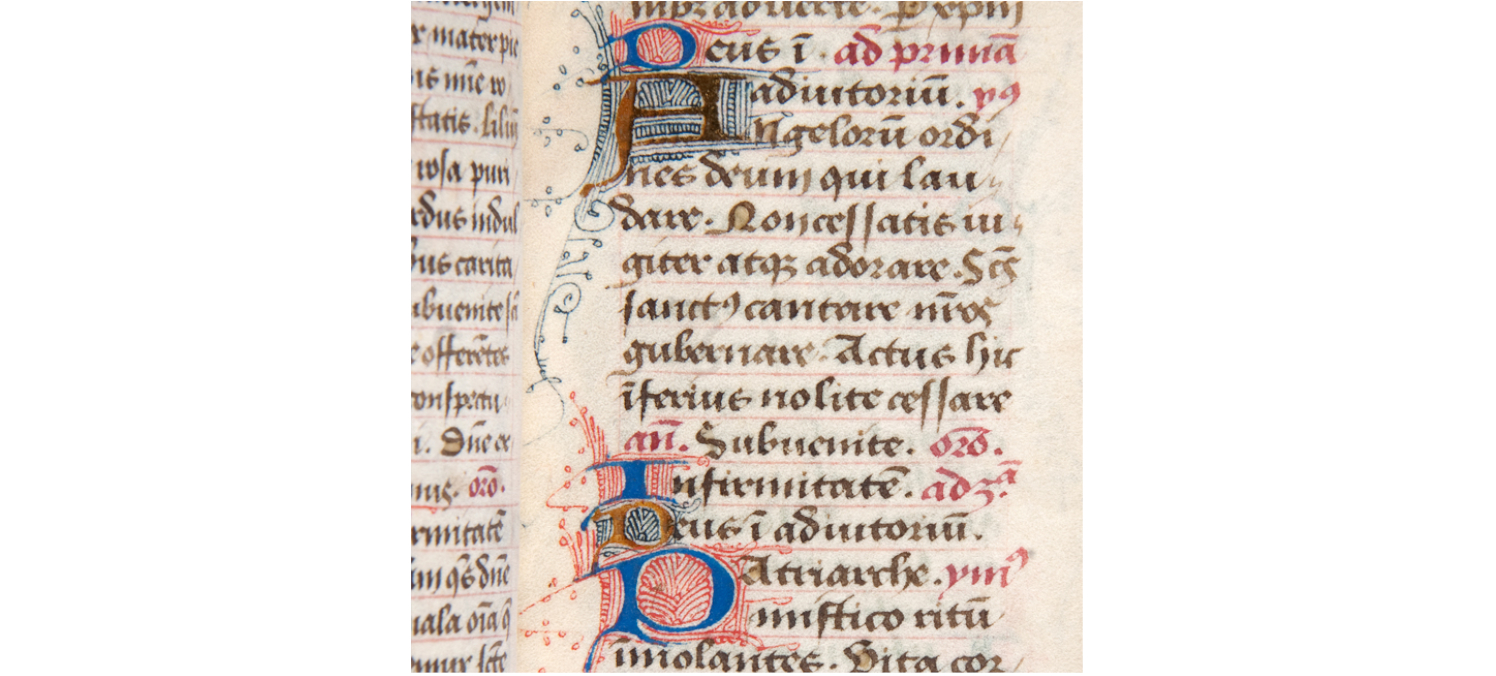 r mater pie
is mīe ro
ſtatis. liliū
roſa puri
rdus indul
bus carita
ubuenite ſā
offerētes
conſpectu
i. Dn̄e ex
oro.
rmitatē
m qs dn̄e
mala oīa
Deus ī. ad primā
adiutoriū. yꝰ
Angeloꝝ ordi
nes deum qui lau
dare. Non ceſſatis iu
giter atqꝫ adorare. Scs̄
ſanctꝰ cantare nr̄os
gubernare. Actus hic
īferius nolite ceſſare
an̄. Subuenite. oro.
Infirmitatē. ad 3ᵃ
Deus ī adiutoriū.
PAtriarche. ymꝰ
miſtico ritū
īmolantes. Vita cor